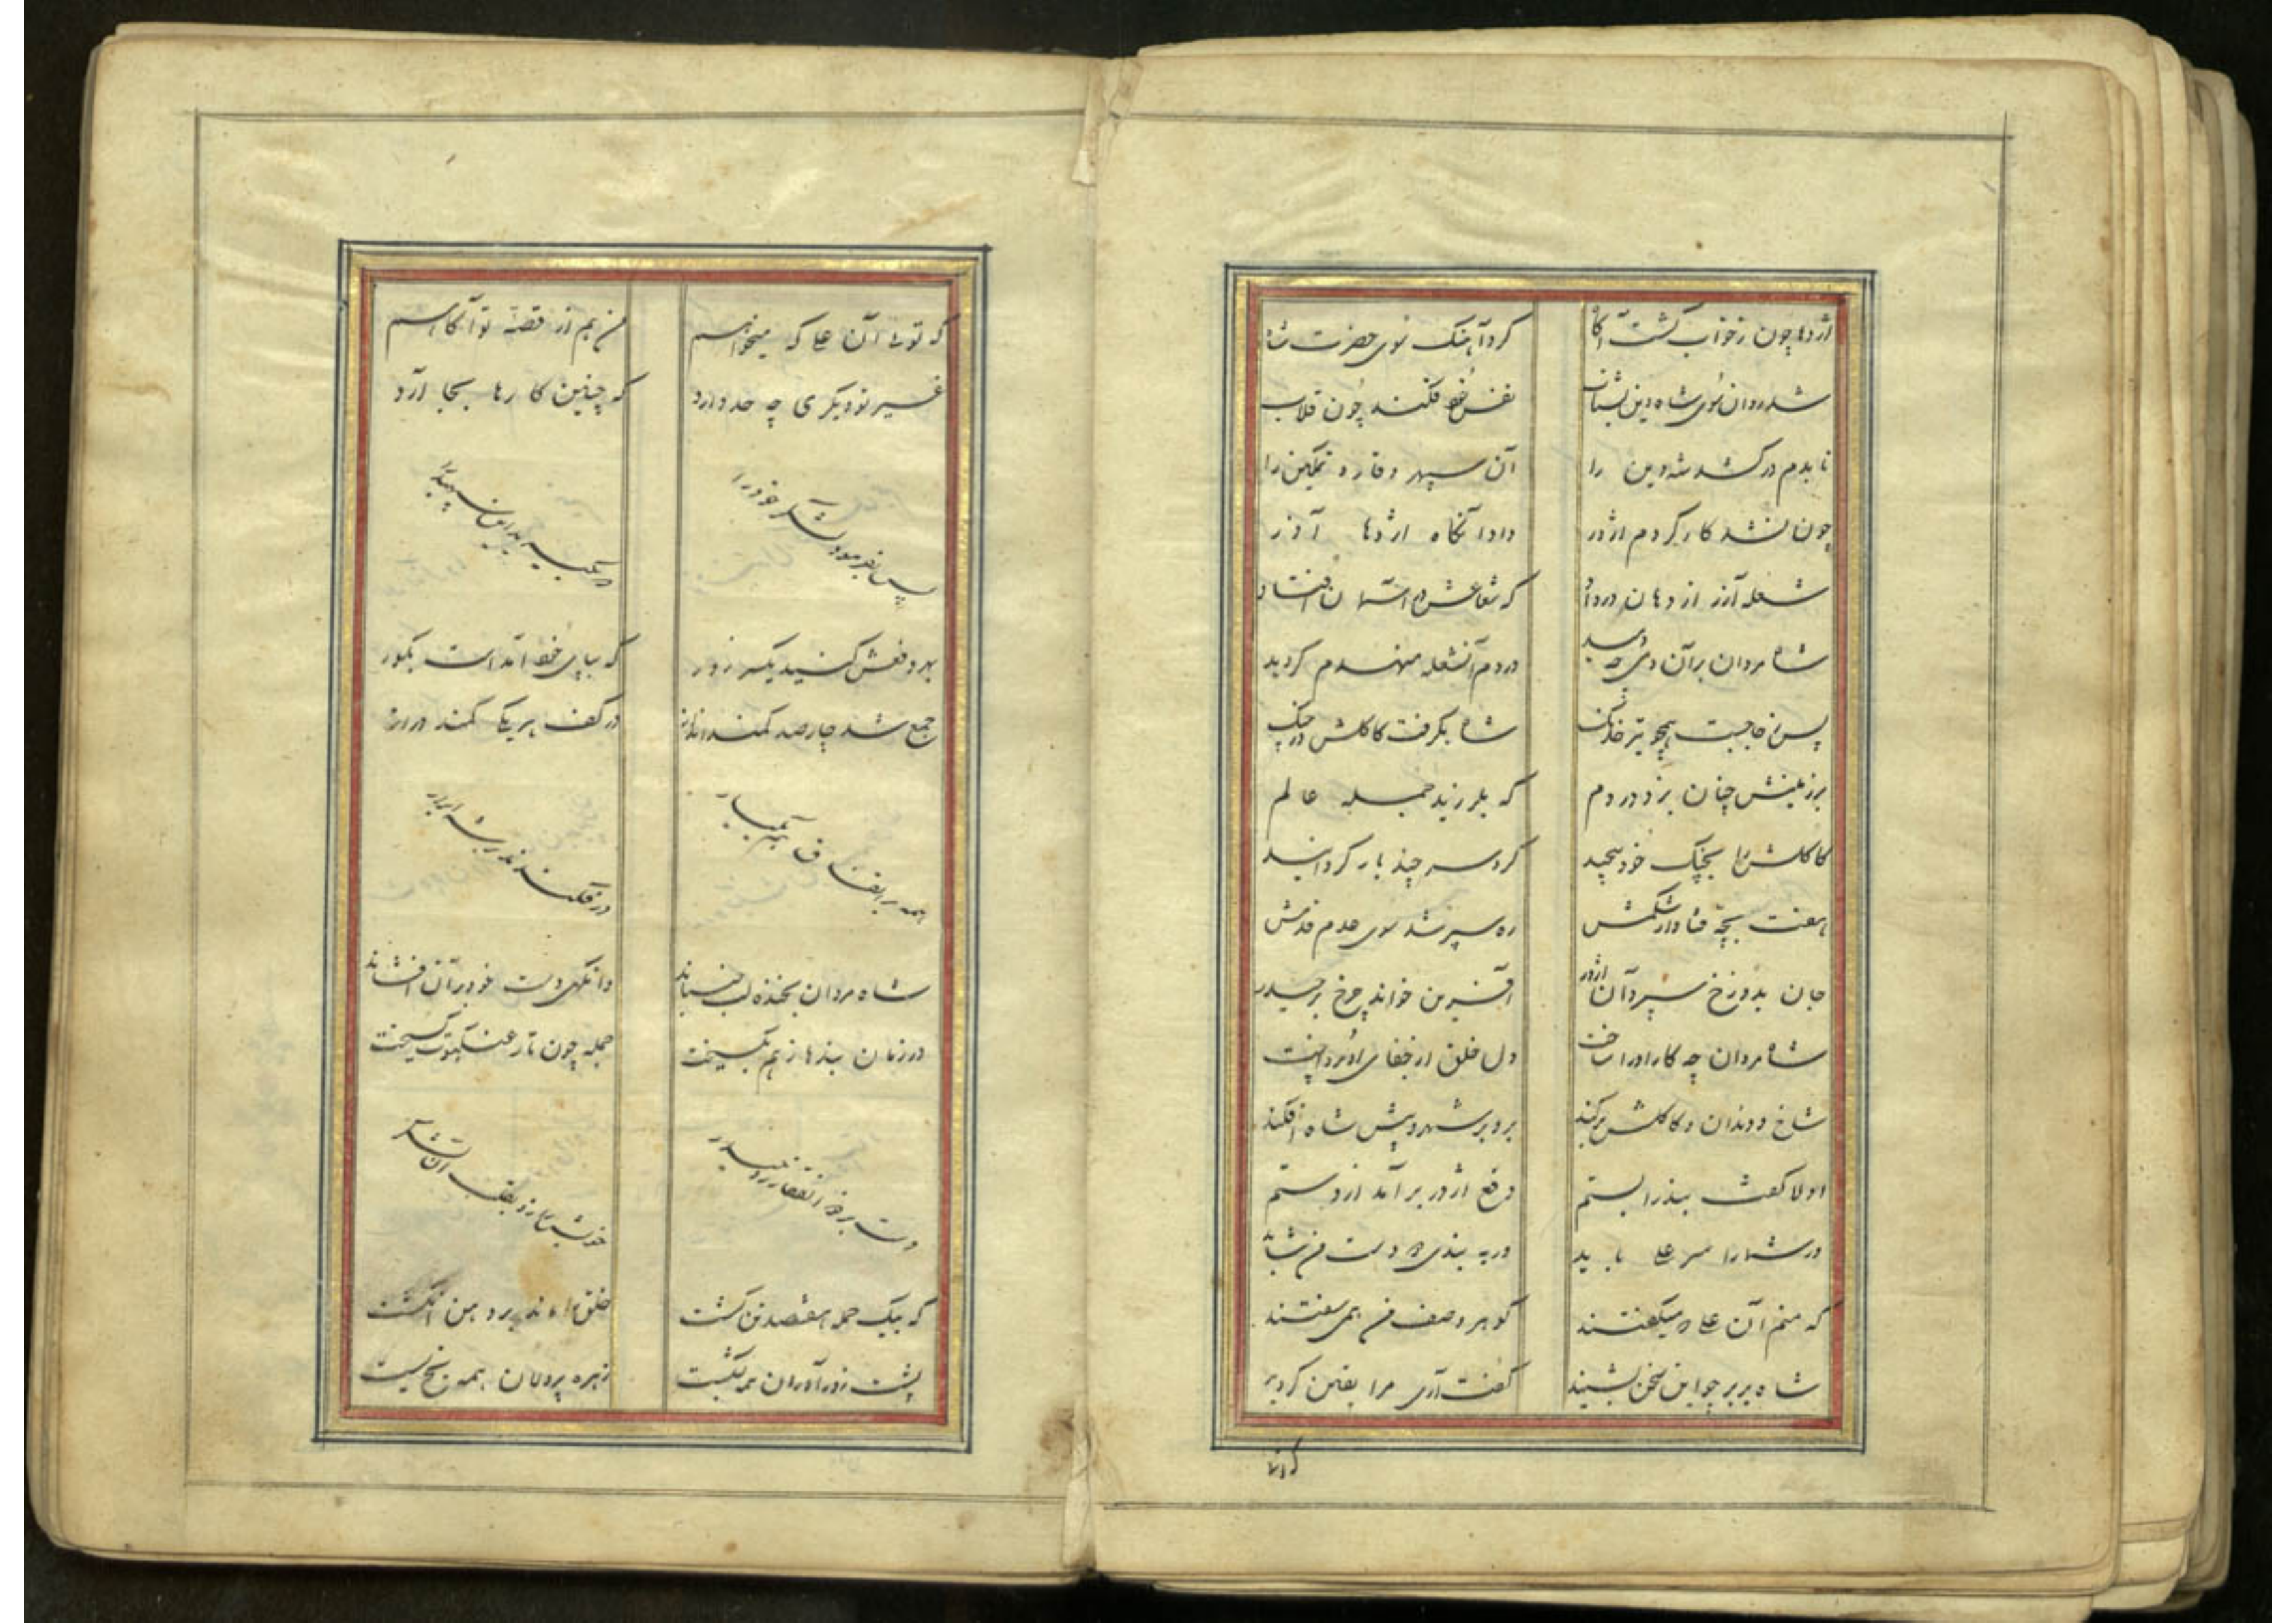 اژدها چون ز خواب گشت آگاه کرد آهنک سوی حضرت شاه
شد روان سوی شاه دین بشتاب نفس خود فکند چون قلاب
تا بدم در کشد شه دین را آن سپهر وقار و تمکین را
چون نشد کارگر دم اژدر داد آنگاه اژدها آذر
شعله آذر از دهان در داد که شعاعش در آسمان افتاد
شاه مردان بر آن دمید در دم آن شعله منهدم گردید
پس ز جا جست همچو تیر خدنک شاه بگرفت کاکلش در چنک
بر زمینش چنان بزد در دم که بلرزید جمله عالم
کاکلش را بچنک خود پیچید گرد سر چند بار گردانید
هفت بچه فتاد از شکمش ره سپر شد سوی عدم قدمش
جان بدوزخ سپرد آن اژدر آفرین خواند چرخ بر حیدر
شاه مردان چه کار او را ساخت دل خلق از جفای او پرداخت
شاخ و دندان و کاکلش بر کند برد بر شهر و پیش شاه افکند
اولا گفت بند را بستم دفع اژدر بر آمد از دستم
ور شما را سر علی باید ور به بندی دست من شاید
که منم آن علی که میگفتند گوهر وصف من همی سفتند
شاه بربر چو این سخن بشنید گفت آری مرا یقین گردید
که توئی آن علی که میخواهم من هم از قصه تو آگاهم
غیر تو دیگری چه حد دارد که چنین کارها بجا آرد
پس بفرمود لشکر خود را
بهر دفعش کنید یکسر زور که بپای خود آمد است بگور
جمع شد چار صد کمند انداز در کف هر یکی کمند دراز
همه بر اتفاق هم یکبار در فکندند بر شه ابرار
شاه مردان بخنده لب جنباند وانگهی دست خود بر آن افشاند
در زمان بندها ز هم بگسیخت جمله چون تار عنکبوت گسیخت
دست بر ذوالفقار زد حیدر خویشتن را زد بقلب آن لشکر
که بیک حمله هفتصد تن کشت خلق را ماند بر دهن انگشت
پشت زورآوران همه بشکست زهره پردلان همه